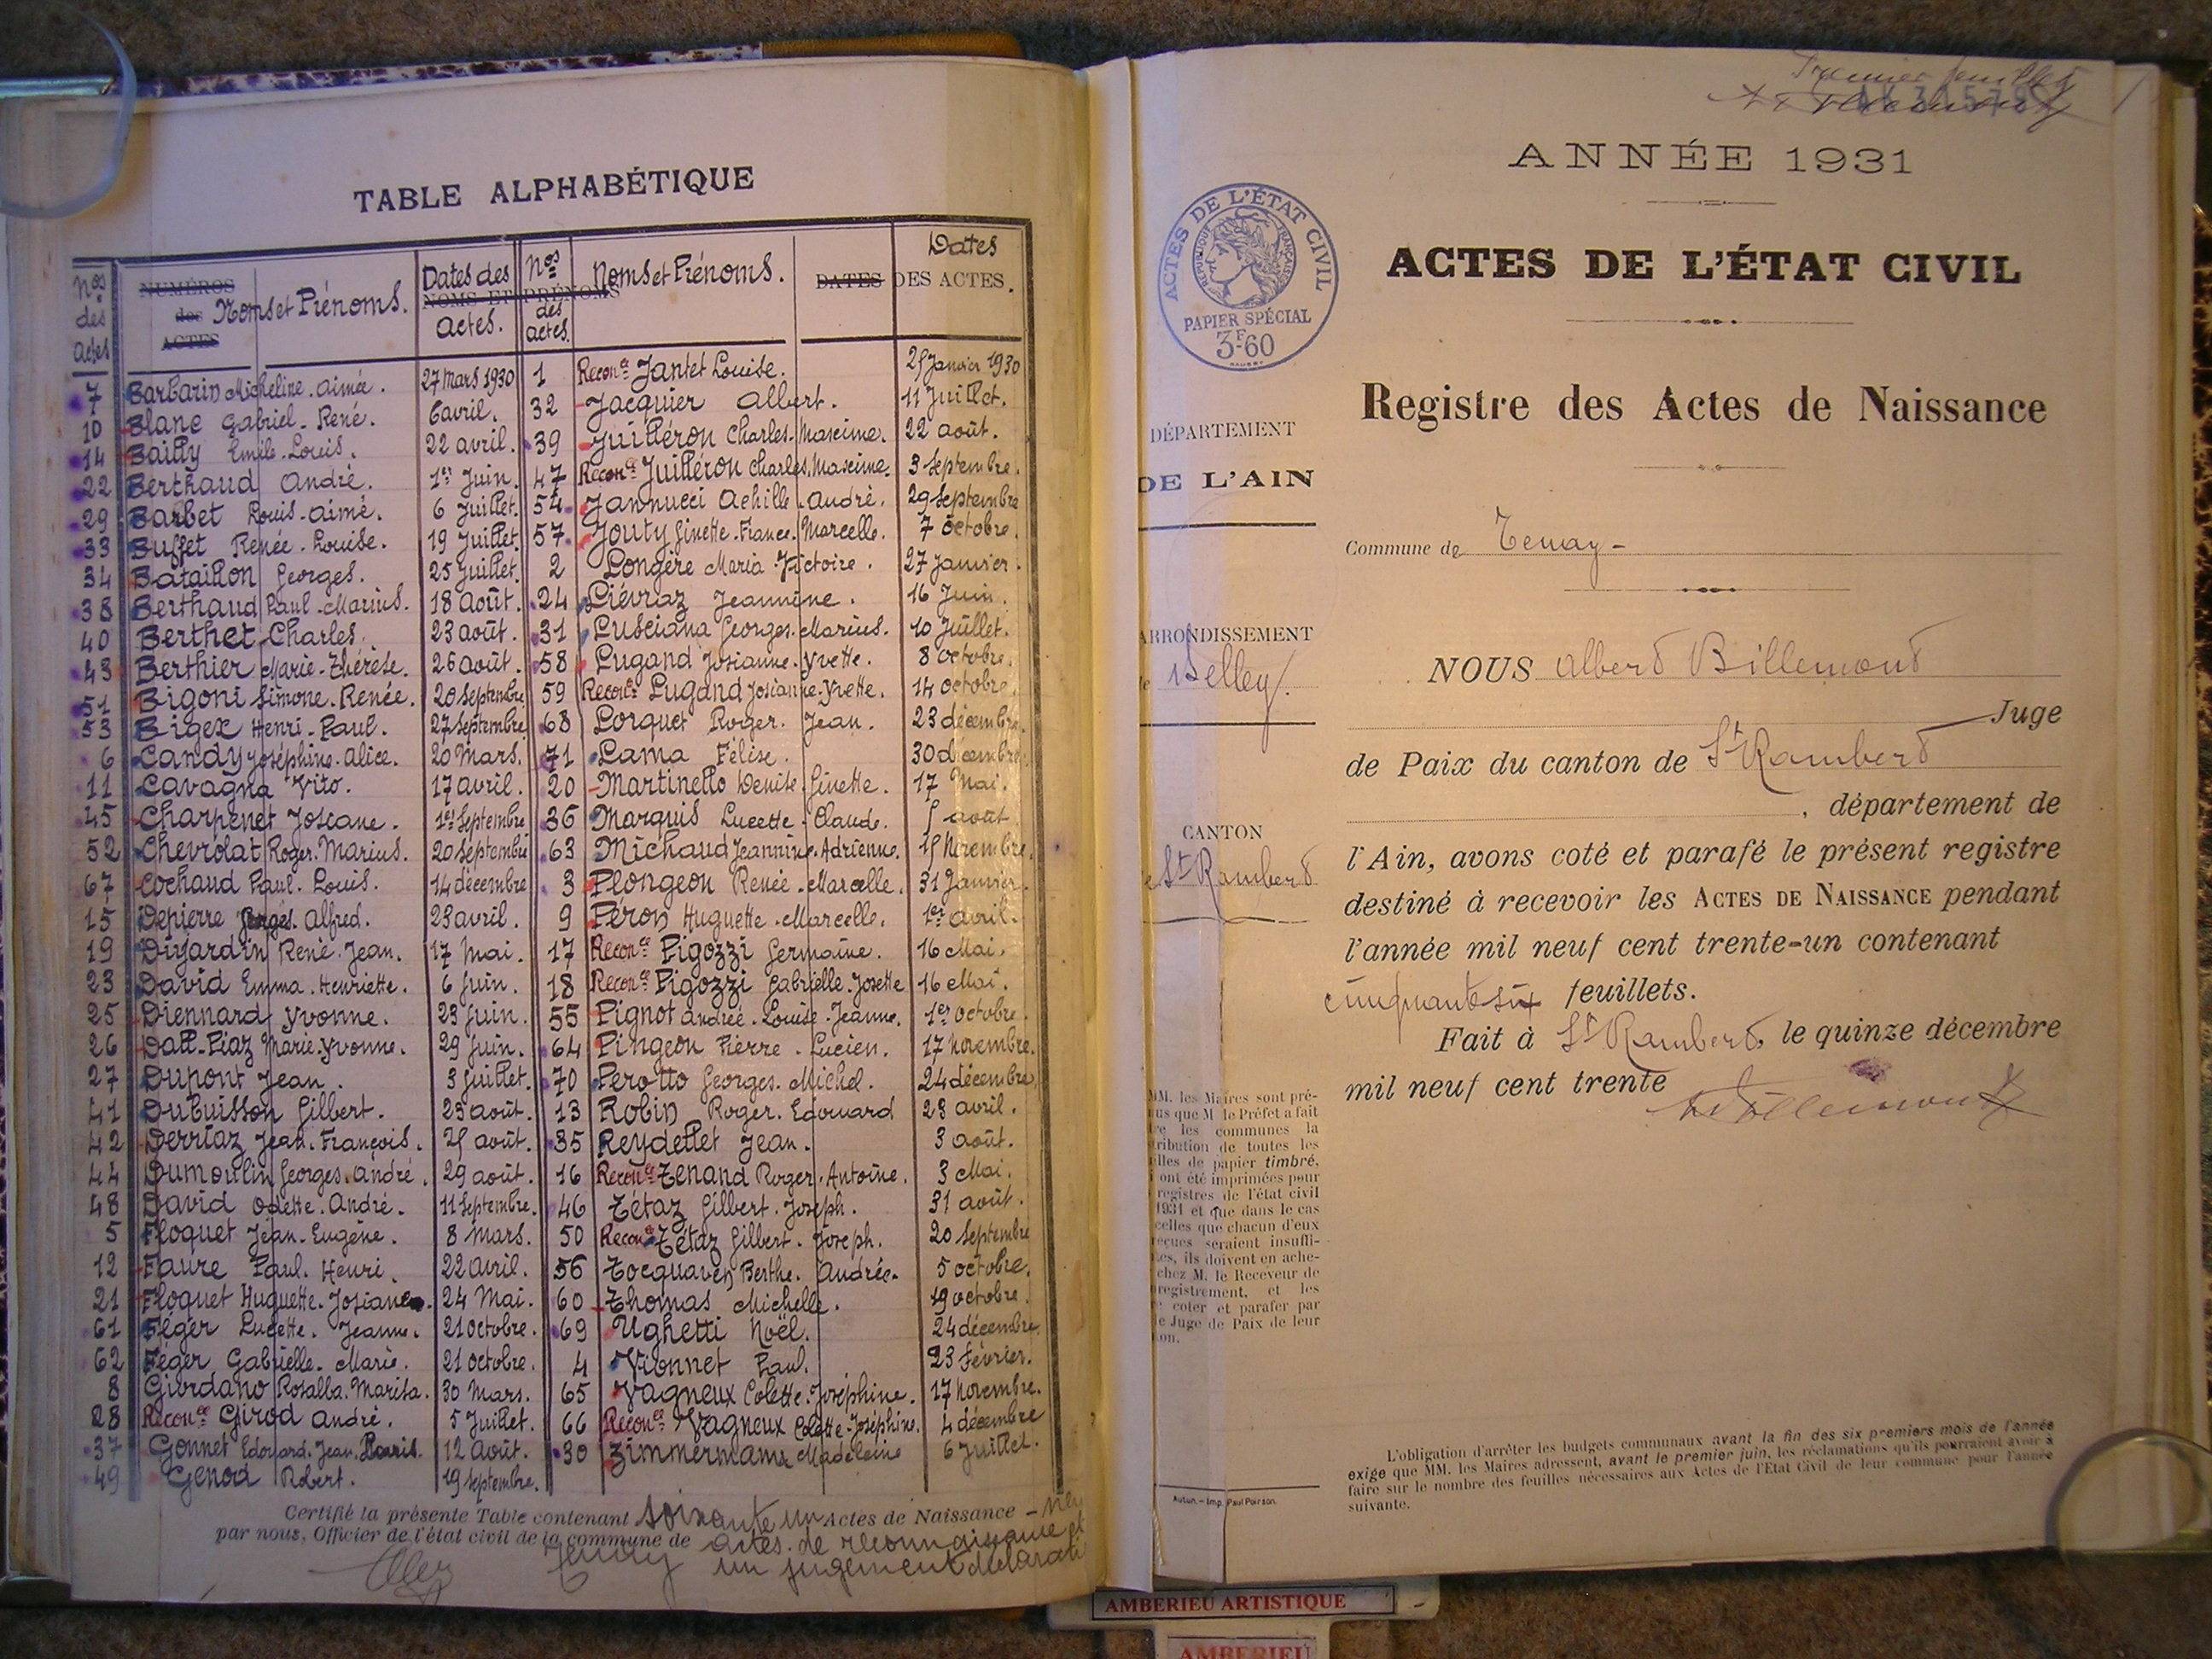 TABLE ALPHABÉTIQUE
Nos des Actes
NUMÉROS des ACTES
Noms et Prénoms.
Dates des actes.
NOMS ET PRÉNOMS
Nos des actes.
Noms et Prénoms.
Dates
DATES DES ACTES.
7 Barbarin Micheline. Aimée. 27 Mars 1930
10 Blanc Gabriel. René. 6 avril.
14 Bailly Emile. Louis. 22 avril.
22 Berthaud André. 1er Juin.
29 Barbet Louis. Aimé. 6 Juillet.
33 Buffet Renée. Louise. 19 Juillet.
34 Bataillon Georges. 25 Juillet.
38 Berthaud Paul. Marius. 18 Août.
40 Berthet Charles. 23 août.
43 Berthier Marie. Thérèse. 26 août.
51 Bigoni Simone. Renée. 20 Septembre
53 Bigex Henri. Paul. 27 Septembre
6 Candy Joséphine. Alice. 20 Mars.
11 Cavagna Vito. 17 avril.
45 Charpenet Joseane. 1er Septembre
52 Chevrolat Roger. Marius. 20 Septembre
67 Cochaud Paul. Louis. 14 décembre
15 Depierre Alfred. 23 avril.
19 Dijardin René. Jean. 17 Mai.
23 David Emma. Henriette. 6 Juin.
25 Diennard Yvonne. 23 Juin.
26 Dall-Piaz Marie. Yvonne. 29 Juin.
27 Dupont Jean. 3 Juillet.
41 Dubuisson Gilbert. 23 août.
42 Derriaz Jean. François. 25 août.
44 Dumoulin Georges. André. 29 août.
48 David Odette. André. 11 Septembre.
5 Floquet Jean. Eugène. 8 Mars.
12 Faure Paul. Henri. 22 avril.
21 Floquet Huguette. Josiane. 24 Mai.
61 Féger Lucette. Jeanne. 21 Octobre.
62 Féger Gabrielle. Marie. 21 Octobre.
8 Giordano Rosalba. Marisa. 30 Mars.
28 Reconce Girod André. 5 Juillet.
37 Gonnet Edouard. Jean. 12 Août.
49 Genod Robert. 19 Septembre.
1 Reconce Jantet Louise. 25 Janvier 1930
32 Jacquier Albert. 11 Juillet.
39 Juilléron Charles. Maxime. 22 août.
47 Reconce Juilléron Charles. Maxime. 3 Septembre.
54 Jannucci Achille. André. 29 Septembre
57 Jouty Ginette. France. Marcelle. 7 Octobre.
2 Longère Maria. Victoire. 27 Janvier.
24 Liévriaz Jeannine. 16 Juin.
31 Lusciana Georges. Marius. 10 Juillet.
58 Lugand Josianne. Yvette. 8 Octobre.
59 Reconce Lugand Josianne. Yvette. 14 Octobre.
68 Lorquet Roger. Jean. 23 décembre.
71 Lama Félise. 30 décembre.
20 Martinetto Denise. Ginette. 17 Mai.
36 Marquis Lucette. Claude. 5 août.
63 Michaud Jeannine. Adrienne. 15 Novembre.
3 Plongeon Renée. Marcelle. 31 Janvier.
9 Péron Huguette. Marcelle. 1er avril.
17 Reconce Pigozzi Germaine. 16 Mai.
18 Reconce Pigozzi Gabrielle. Josette 16 Mai.
55 Pignot Andrée. Louise. Jeanne. 1er Octobre.
64 Pingeon Pierre. Lucien. 17 Novembre.
70 Perotto Georges. Michel. 24 décembre.
13 Robin Roger. Edouard 23 avril.
35 Reydellet Jean. 3 août.
16 Reconce Tenand Roger. Antoine. 3 Mai.
46 Tétaz Gilbert. Joseph. 31 août.
50 Reconce Tétaz Gilbert. Joseph. 20 Septembre
56 Tocquaven Berthe. Andrée. 5 Octobre.
60 Thomas Michelle. 19 octobre.
69 Ughetti Noël. 24 décembre.
4 Vionnet Paul. 23 février.
65 Vagneux Colette. Joséphine. 17 Novembre.
66 Reconce Vagneux Colette. Joséphine. 4 décembre
30 Zimmermann Madeleine 6 Juillet.
Certifié la présente Table contenant soixante un Actes de Naissance –
par nous, Officier de l'état civil de la commune de Tenay actes de reconnaissance et
un jugement déclaratif
Premier feuillet
ANNÉE 1931
ACTES DE L'ÉTAT CIVIL
ACTES DE L'ÉTAT CIVIL
RÉPUBLIQUE FRANÇAISE
PAPIER SPÉCIAL
3F60
Registre des Actes de Naissance
DÉPARTEMENT
DE L'AIN
Commune de Tenay –
ARRONDISSEMENT
Belley
NOUS Albert Billemont
Juge
de Paix du canton de St Rambert
, département de
CANTON
St Rambert
l'Ain, avons coté et parafé le présent registre
destiné à recevoir les ACTES DE NAISSANCE pendant
l'année mil neuf cent trente-un contenant
cinquante six feuillets.
Fait à St Rambert, le quinze décembre
mil neuf cent trente
Billemont
MM. les Maires sont pré-
us que M. le Préfet a fait
re les communes la
tribution de toutes les
illes de papier timbré,
i ont été imprimées pour
registres de l'état civil
1931 et que dans le cas
celles que chacun d'eux
reçues seraient insuffi-
tes, ils doivent en ache-
chez M. le Receveur de
nregistrement, et les
coter et parafer par
e Juge de Paix de leur
ton.
Autun. – Imp. Paul Poirson.
L'obligation d'arrêter les budgets communaux avant la fin des six premiers mois de l'année
exige que MM. les Maires adressent, avant le premier juin, les réclamations qu'ils pourraient avoir à
faire sur le nombre des feuilles nécessaires aux Actes de l'Etat Civil de leur commune pour l'année
suivante.
AMBERIEU ARTISTIQUE
AMBERIEU